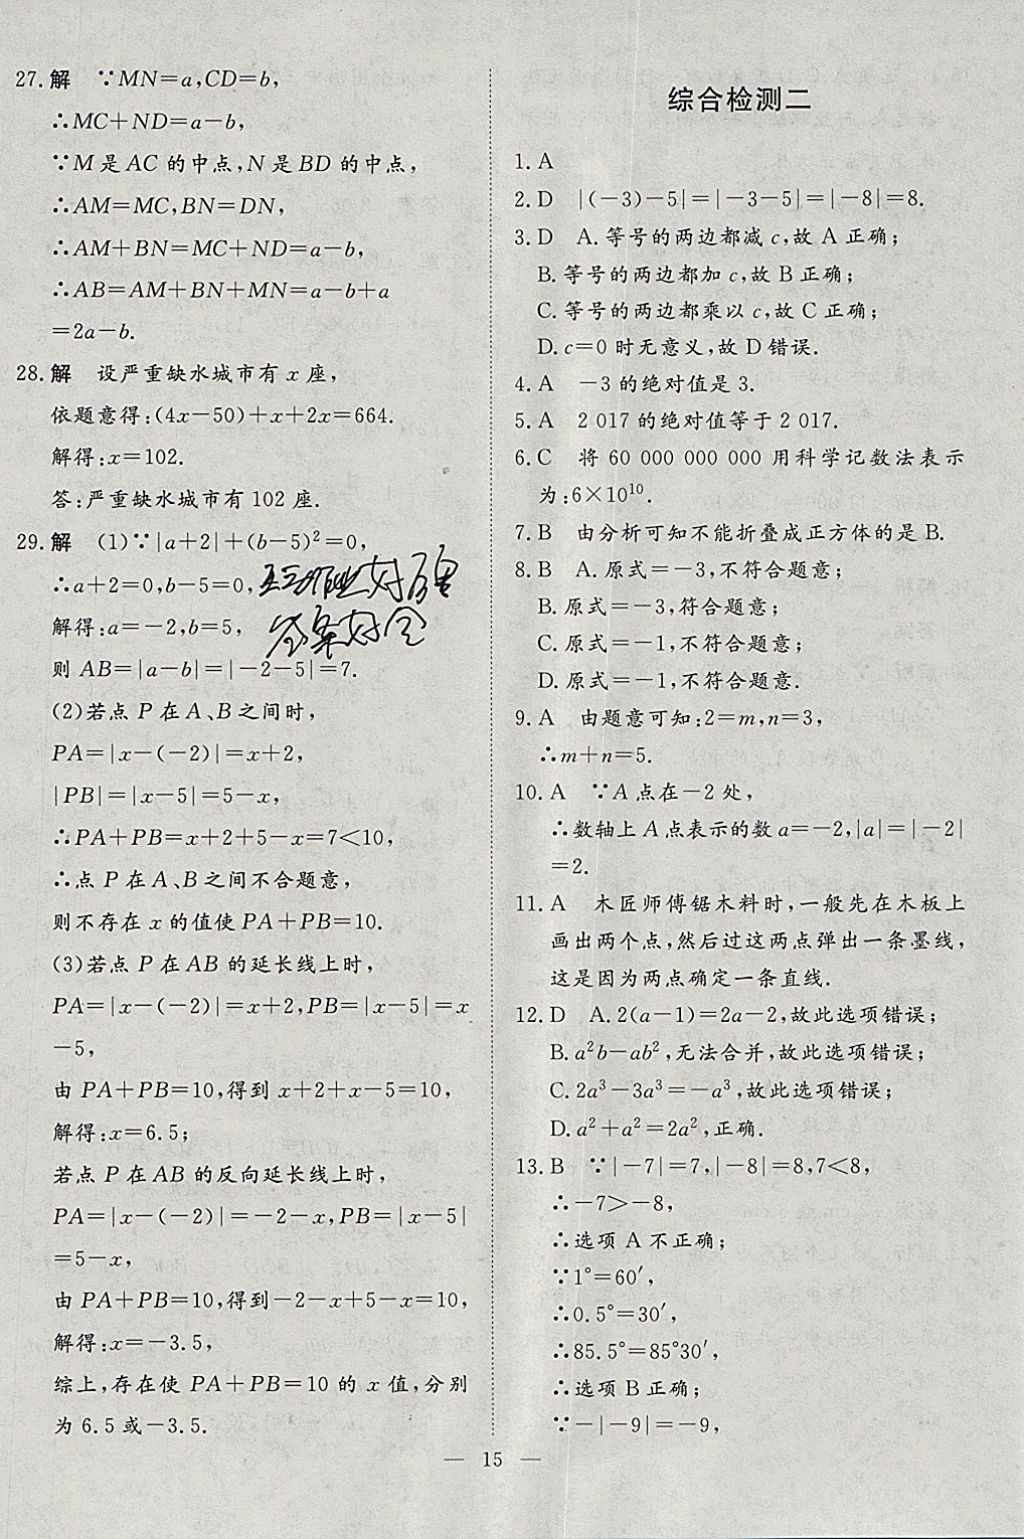 27. 解 ∵MN=a,CD=b,
∴MC+ND=a-b,
∵M 是 AC 的中点,N 是 BD 的中点,
∴AM=MC,BN=DN,
∴AM+BN=MC+ND=a-b,
∴AB=AM+BN+MN=a-b+a
=2a-b.
28. 解 设严重缺水城市有 x 座,
依题意得:(4x-50)+x+2x=664.
解得:x=102.
答:严重缺水城市有 102 座.
29. 解 (1)∵|a+2|+(b-5)²=0,
∴a+2=0,b-5=0,
解得:a=-2,b=5,
则 AB=|a-b|=|-2-5|=7.
(2)若点 P 在 A、B 之间时,
PA=|x-(-2)|=x+2,
|PB|=|x-5|=5-x,
∴PA+PB=x+2+5-x=7<10,
∴点 P 在 A、B 之间不合题意,
则不存在 x 的值使 PA+PB=10.
(3)若点 P 在 AB 的延长线上时,
PA=|x-(-2)|=x+2,PB=|x-5|=x
-5,
由 PA+PB=10,得到 x+2+x-5=10,
解得:x=6.5;
若点 P 在 AB 的反向延长线上时,
PA=|x-(-2)|=-2-x,PB=|x-5|
=5-x,
由 PA+PB=10,得到-2-x+5-x=10,
解得:x=-3.5,
综上,存在使 PA+PB=10 的 x 值,分别
为 6.5 或-3.5.
综合检测二
1. A
2. D |(-3)-5|=|-3-5|=|-8|=8.
3. D A.等号的两边都减 c,故 A 正确;
B.等号的两边都加 c,故 B 正确;
C.等号的两边都乘以 c,故 C 正确;
D.c=0 时无意义,故 D 错误.
4. A -3 的绝对值是 3.
5. A 2 017 的绝对值等于 2 017.
6. C 将 60 000 000 000 用科学记数法表示
为:6×10¹⁰.
7. B 由分析可知不能折叠成正方体的是 B.
8. B A.原式=-3,不符合题意;
B.原式=-3,符合题意;
C.原式=-1,不符合题意;
D.原式=-1,不符合题意.
9. A 由题意可知:2=m,n=3,
∴m+n=5.
10. A ∵A 点在-2 处,
∴数轴上 A 点表示的数 a=-2,|a|=|-2|
=2.
11. A 木匠师傅锯木料时,一般先在木板上
画出两个点,然后过这两点弹出一条墨线,
这是因为两点确定一条直线.
12. D A.2(a-1)=2a-2,故此选项错误;
B.a²b-ab²,无法合并,故此选项错误;
C.2a³-3a³=-a³,故此选项错误;
D.a²+a²=2a²,正确.
13. B ∵|-7|=7,|-8|=8,7<8,
∴-7>-8,
∴选项 A 不正确;
∵1°=60′,
∴0.5°=30′,
∴85.5°=85°30′,
∴选项 B 正确;
∵-|-9|=-9,
— 15 —